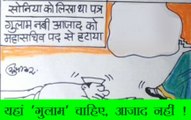 सोनिया को लिखा था पत्र
गुलाम नबी आजाद को
महासचिव पद से हटाया
यहां ‘गुलाम’ चाहिए, आजाद नहीं !